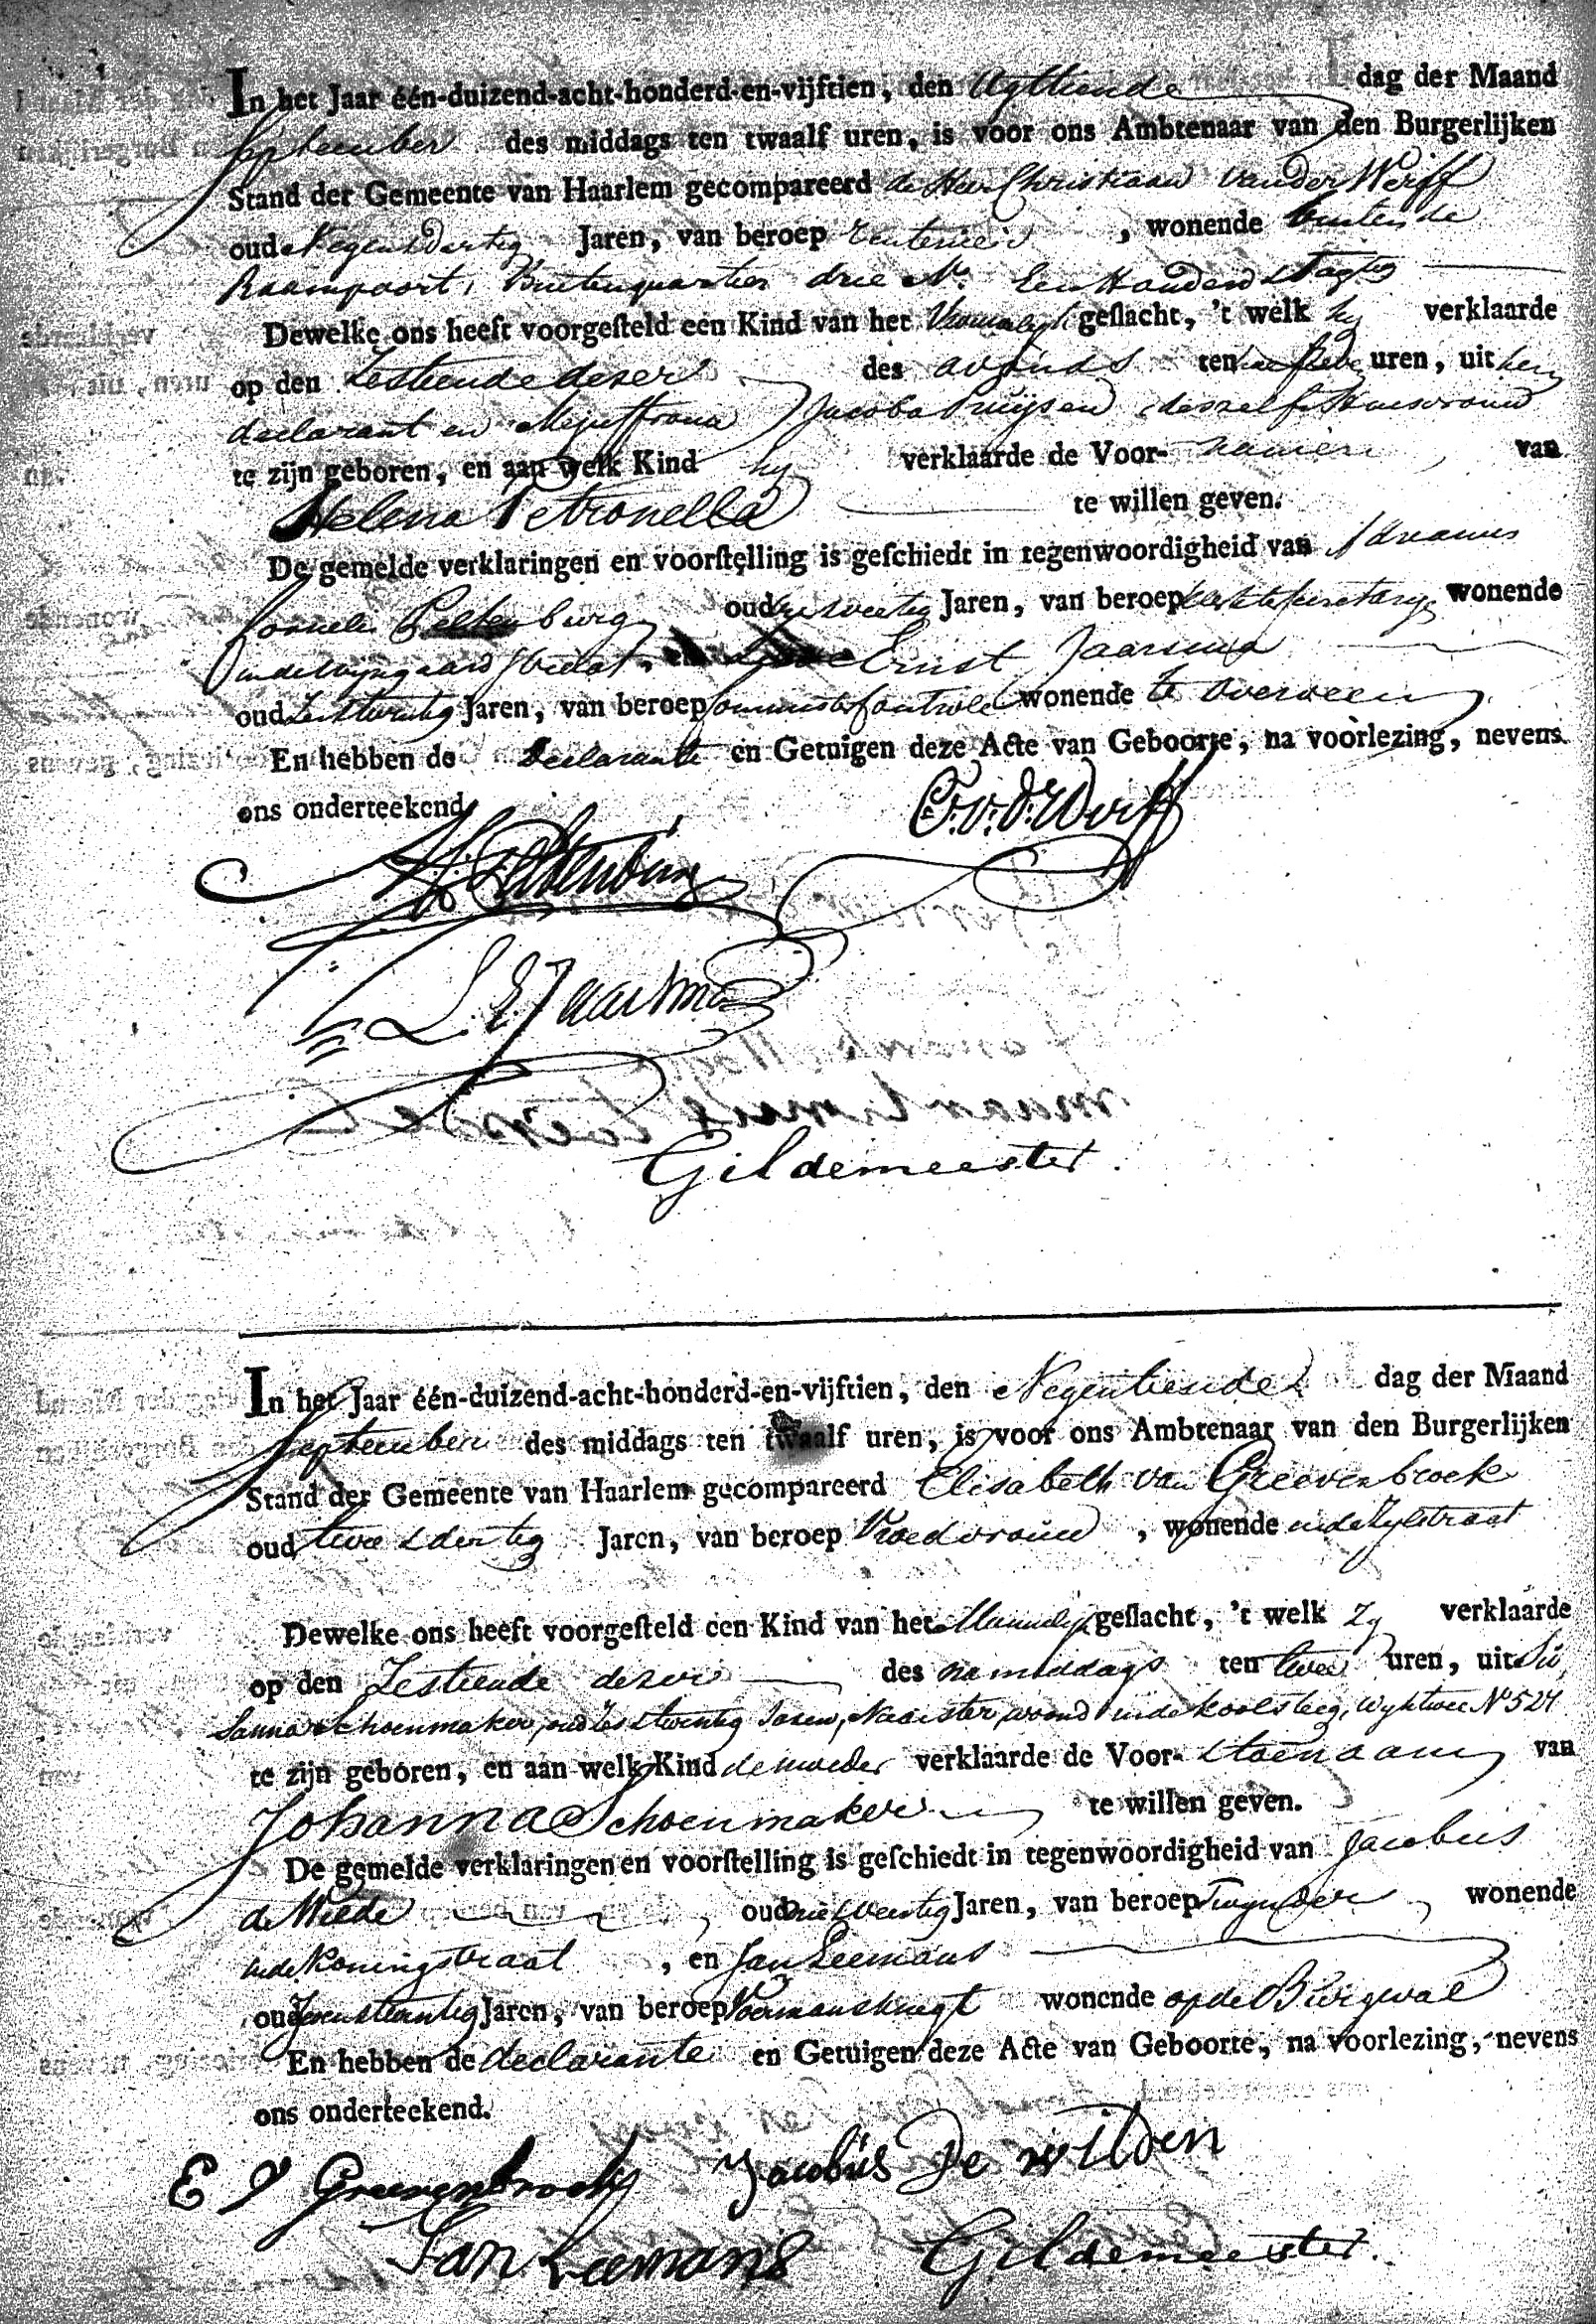 In het Jaar één-duizend-acht-honderd-en-vijftien, den Agttiende dag der Maand
September des middags ten twaalf uren, is voor ons Ambtenaar van den Burgerlijken
Stand der Gemeente van Haarlem gecompareerd de Heer Christiaan van der Werff
oud Negen & dertig Jaren, van beroep rentenier, wonende buiten de
Raampoort, Buitenquartier drie No. Een Honderd & Tagtig
Dewelke ons heeft voorgesteld een Kind van het Vrouwelyk geslacht, 't welk hy verklaarde
op den Zestiende dezer des avonds ten uren, uit hem
declarant en Mejuffrouw Jacoba Pruijsen deszelfs Huisvrouw
te zijn geboren, en aan welk Kind hy verklaarde de Voor- namen van
Helena Petronella te willen geven.
De gemelde verklaringen en voorstelling is geschiedt in tegenwoordigheid van Adrianus
Cornelis Peltenburg oud Jaren, van beroep wonende
in de Wyngaardstraat, Ernst Jaarsma
oud Zes & twintig Jaren, van beroep wonende te Overveen
En hebben de Declarante en Getuigen deze Acte van Geboorte, na voorlezing, nevens
ons onderteekend.
C. v. d. Werff
Peltenburg
L. E. Jaarsma
Gildemeester.
In het Jaar één-duizend-acht-honderd-en-vijftien, den Negentiende dag der Maand
September des middags ten twaalf uren, is voor ons Ambtenaar van den Burgerlijken
Stand der Gemeente van Haarlem gecompareerd Elisabeth van Greevenbroek
oud twee & dertig Jaren, van beroep Vroedvrouw, wonende in de Zylstraat
Dewelke ons heeft voorgesteld een Kind van het Mannelyk geslacht, 't welk Zy verklaarde
op den Zestiende dezer des namiddags ten twee uren, uit Su
sanna Schoenmaker, oud Zes & twintig Jaren, Naaister, woond in de Koolsteeg, Wyk twee No 521
te zijn geboren, en aan welk Kind de moeder verklaarde de Voor- & toenaam van
Johannes Schoenmaker te willen geven.
De gemelde verklaringen en voorstelling is geschiedt in tegenwoordigheid van Jacobus
de Wilde oud Drie & veertig Jaren, van beroep Twynder, wonende
in de Koningstraat, en Jan Leemans
oud Zeven & twintig Jaren, van beroep Voermansknegt wonende op de Burgwal
En hebben de declarante en Getuigen deze Acte van Geboorte, na voorlezing, nevens
ons onderteekend.
E V Greevenbroek Jacobus De wilden
Jan Leemans Gildemeester.